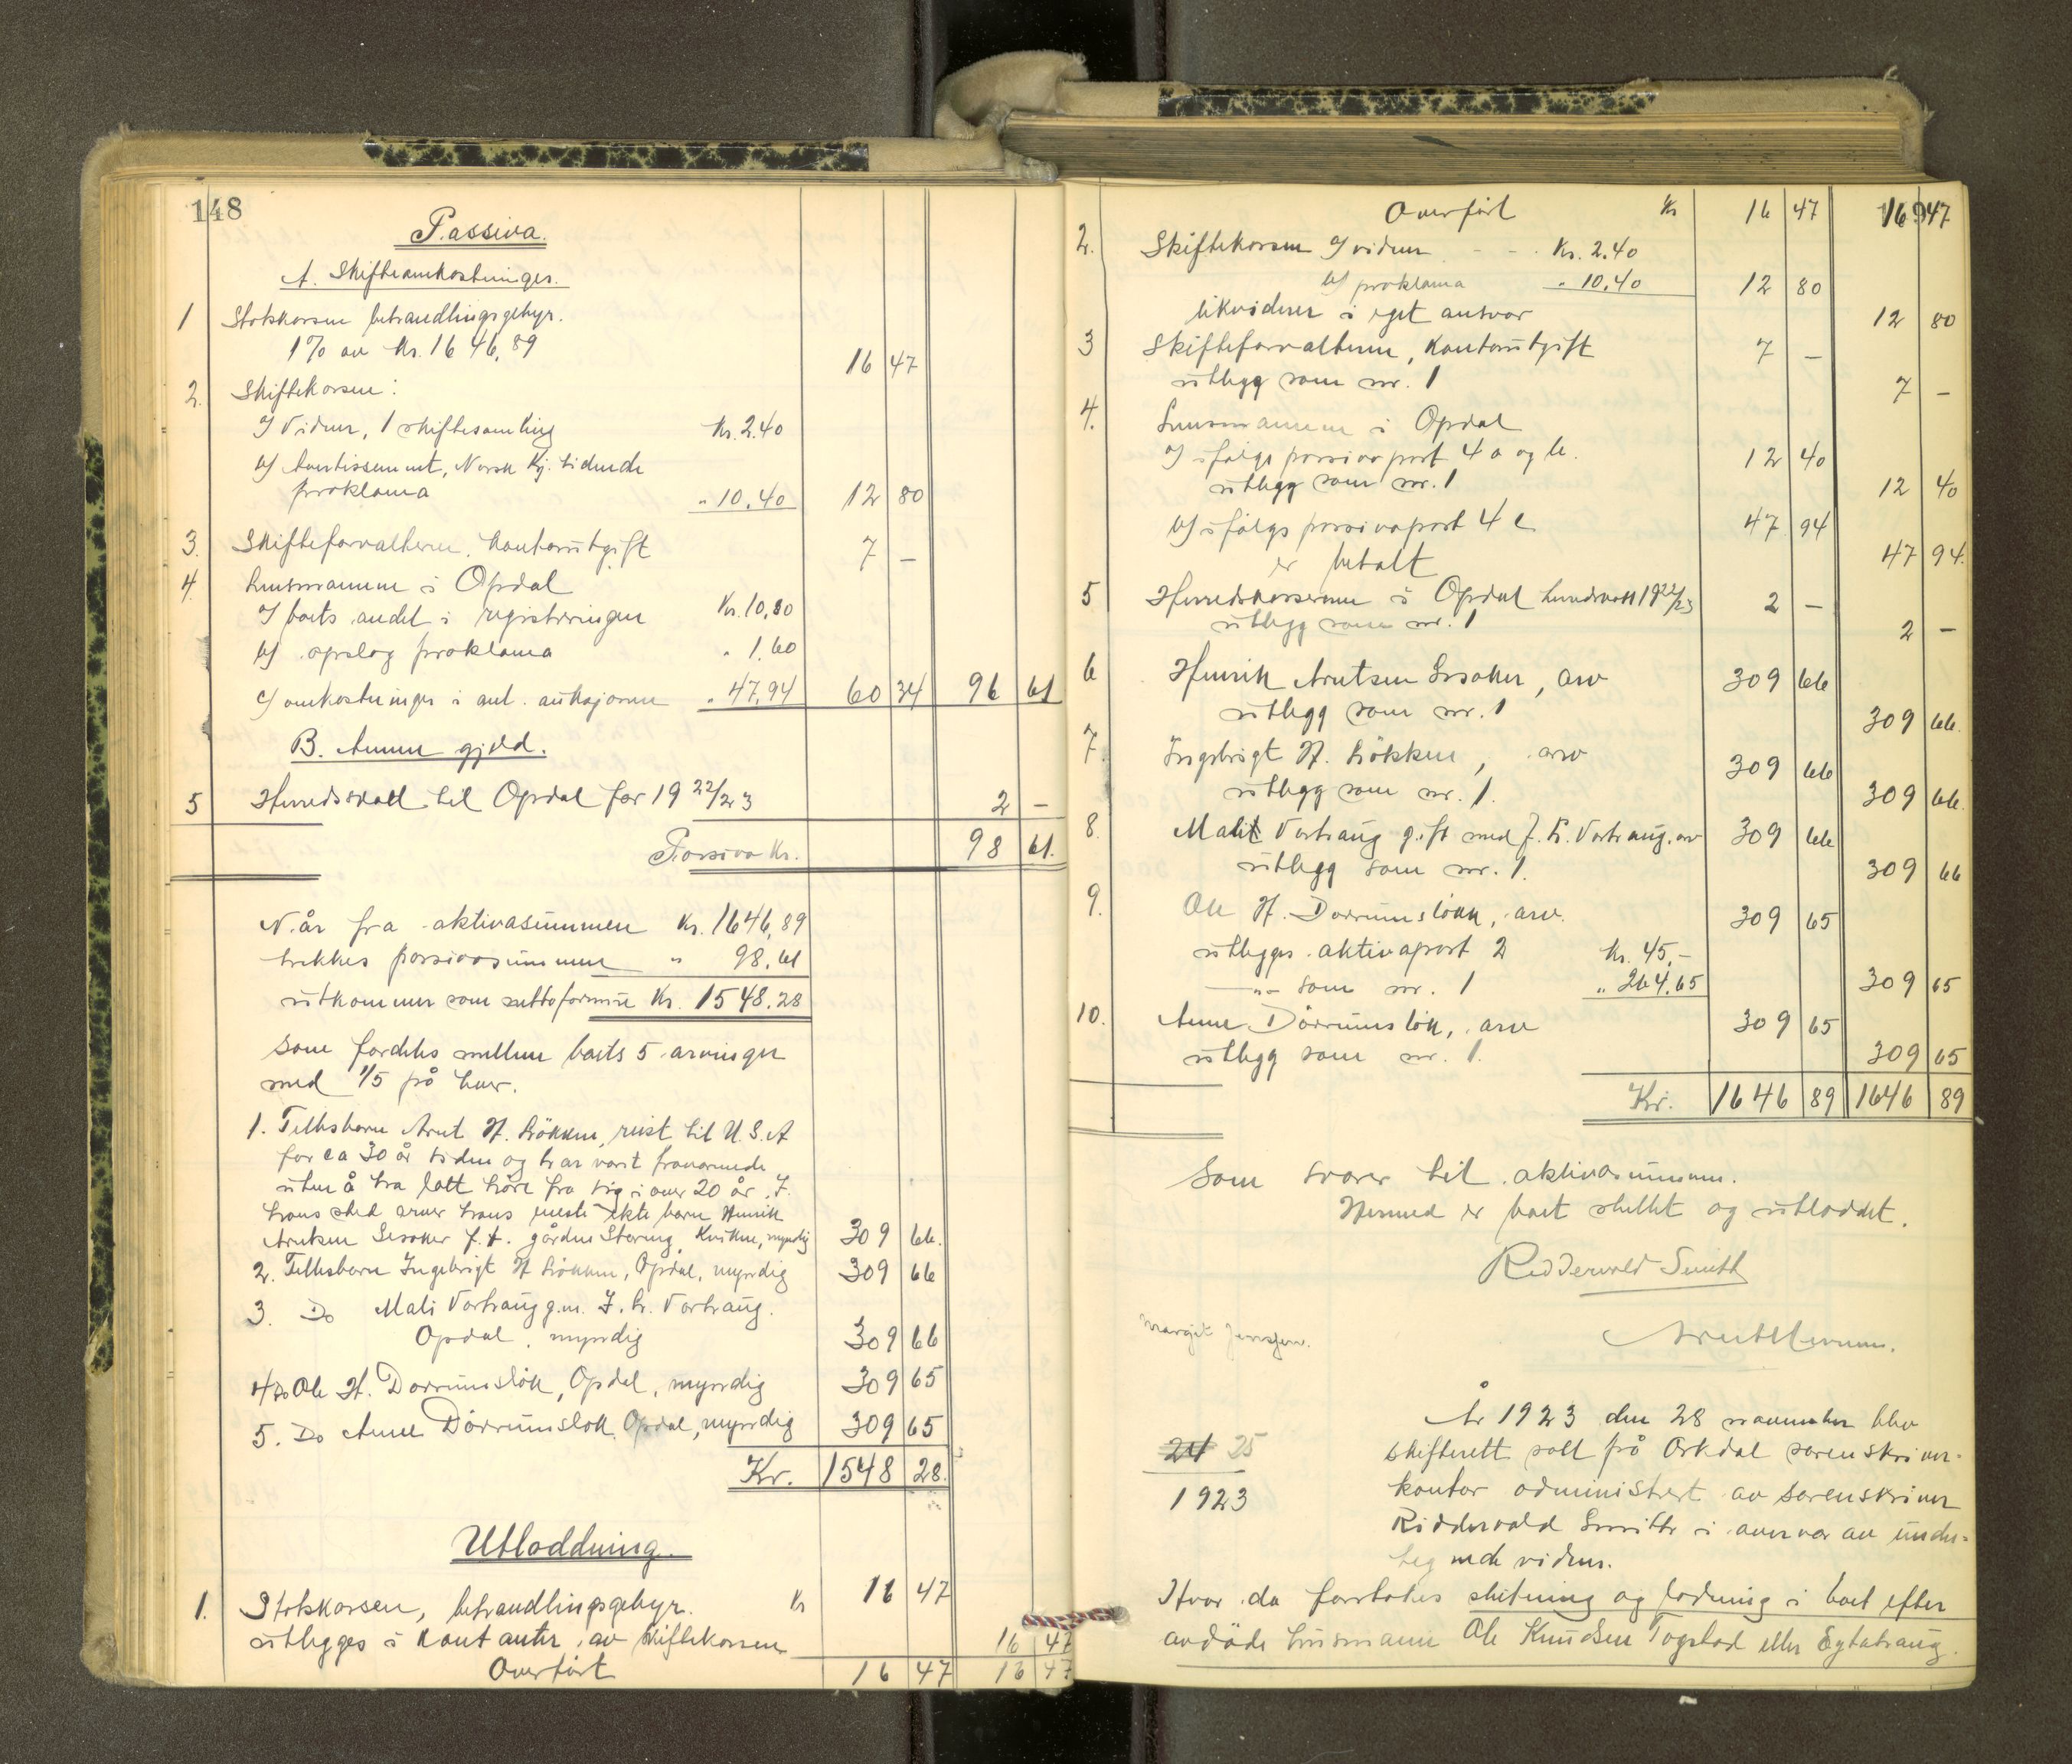 148
Passiva.
A. Skifteomkostninger.
1 Statskassen behandlingsgebyr.
1% av Kr. 1646,89 16 47
2. Skiftekassen:
a) Vidner, 1 skiftesamling Kr. 2.40
b) Avertissement, Norsk Kj. tidende
proklama " 10,40 12 80
3. Skifteforvalteren, kontorutgift 7 –
4. Lensmannen i Opdal
a) boets andel i registreringen Kr. 10,80
b) opslag proklama " 1.60
c) omkostninger i anl. auksjonen " 47,94 60 34 96 61
B. Annen gjeld.
5 Herredsskatt til Opdal for 1922/23 2 –
Passiva Kr. 98 61.
Når fra aktivasummen Kr. 1646,89
trekkes passivasummen " 98,61
utkommer som nettoformue Kr. 1548.28
som fordeles mellem boets 5 arvinger
med 1/5 på hver.
1. Fellesbarn Arnt H. Løkken, reist til U.S.A
for ca 30 år siden og har vært fraværende
uten å ha latt høre fra sig i over 20 år. I
hans sted arver hans eneste ekte barn Henrik
Arntsen f.t. gården Støring, Kvikne, myndig 309 66.
2. Fellesbarn Ingebrigt H Løkken, Opdal, myndig 309 66
3. Do Mali Vortraug g.m. J. Kr. Vortraug.
Opdal, myndig 309 66
4 Do Ole H. Dørrumsløkk, Opdal, myndig 309 65
5. Do Anne Dørrumsløkk Opdal, myndig 309 65
Kr. 1548 28.
Utloddning.
1. Statskassen, behandlingsgebyr. Kr 16 47
utlegges i kontanter av skiftekassen 16 47
Overført 16 47 16 47
Overført Kr 16 47 16 47
2. Skiftekassen a) vidner - - Kr. 2.40
b) proklama " 10.40 12 80
likviderer i eget ansvar 12 80
3 Skifteforvalteren, kontorutgift 7 –
utlegg som nr. 1 7 –
4. Lensmannen i Opdal
a) ifølge passivapost 4 a og b. 12 40
utlegg som nr. 1 12 40
b) ifølge passivapost 4 c 47 94
er betalt 47 94.
5 Herredskassereren i Opdal herredsskatt 1922/23 2 –
utlegg som nr. 1 2 –
6 Henrik Arntsen, arv 309 66
utlegg som nr. 1 309 66.
7 Ingebrigt H. Løkken, arv 309 66
utlegg som nr. 1. 309 66.
8. Malit Vortraug gift med J. Kr. Vortraug. arv 309 66
utlegg som nr. 1. 309 66
9. Ole H. Dørrumsløkk, arv. 309 65
utlegges aktivapost 2 Kr. 45,-
—"— som nr. 1 " 264.65 309 65
10. Anne Dørrumsløk, arv 309 65
utlegg som nr. 1. 309 65
Kr. 1646 89 1646 89
som svarer til aktivasummen.
Hermed er boet sluttet og utloddet.
Riddervold Smith
Margit Jenssen.
År 1923 den 28 november blev
24 25 skifterett satt på Orkdal sorenskriver-
1923 kontor administrert av sorenskriver
Riddervold Smith i overvær av under-
tegnede vidner.
Hvor da foretokes slutning og lodning i boet efter
avdøde husmann Ole Knudsen Togstad eller Egtabraug.